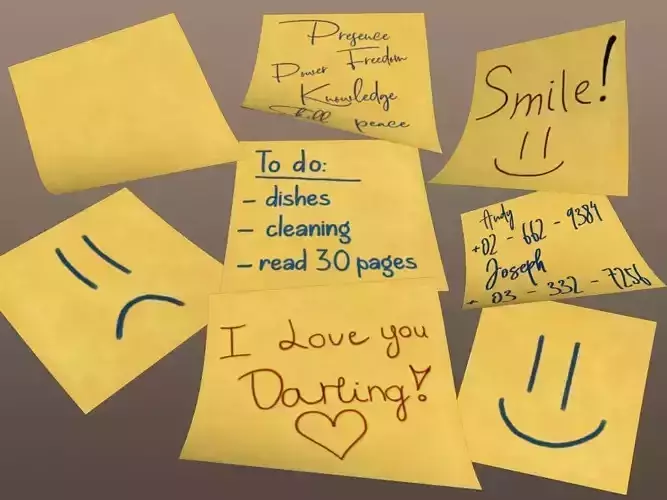 Presence
Power Freedom
Knowledge
peace
Smile!
To do:
– dishes
– cleaning
– read 30 pages
Andy
+02 - 662 - 9384
Joseph
+ 03 - 332 - 7256
I Love you
Darling!